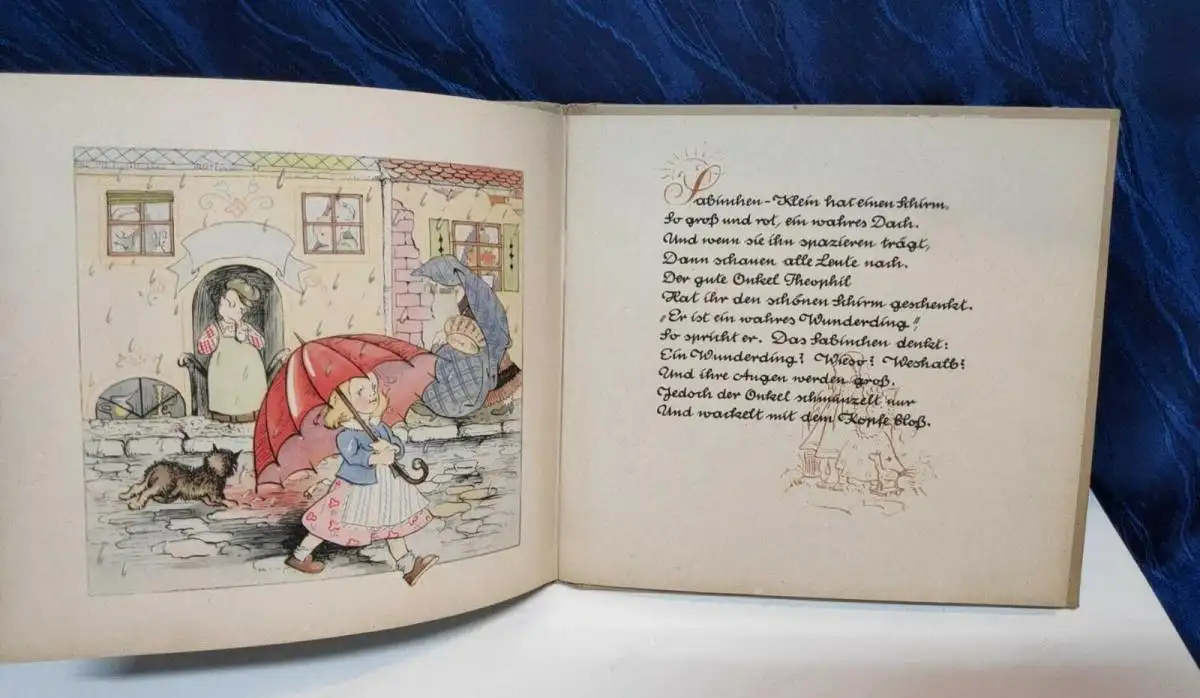 Sabinchen-Klein hat einen Schirm,
So groß und rot, ein wahres Dach.
Und wenn sie ihn spazieren trägt,
Dann schauen alle Leute nach.
Der gute Onkel Theophil
Hat ihr den schönen Schirm geschenkt.
„Er ist ein wahres Wunderding“,
So spricht er. Das Sabinchen denkt:
Ein Wunderding? Wieso? Weshalb?
Und ihre Augen werden groß.
Jedoch der Onkel schmunzelt nur
Und wackelt mit dem Kopfe bloß.